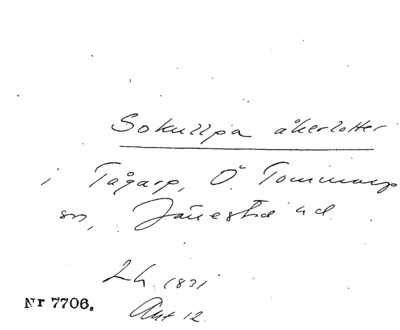 Sokullpa åkerlotter
i Tågarp, Ö. Tommarp
sn, Järrestad hd.
L h. 1831
Akt 12.
Nr 7706.